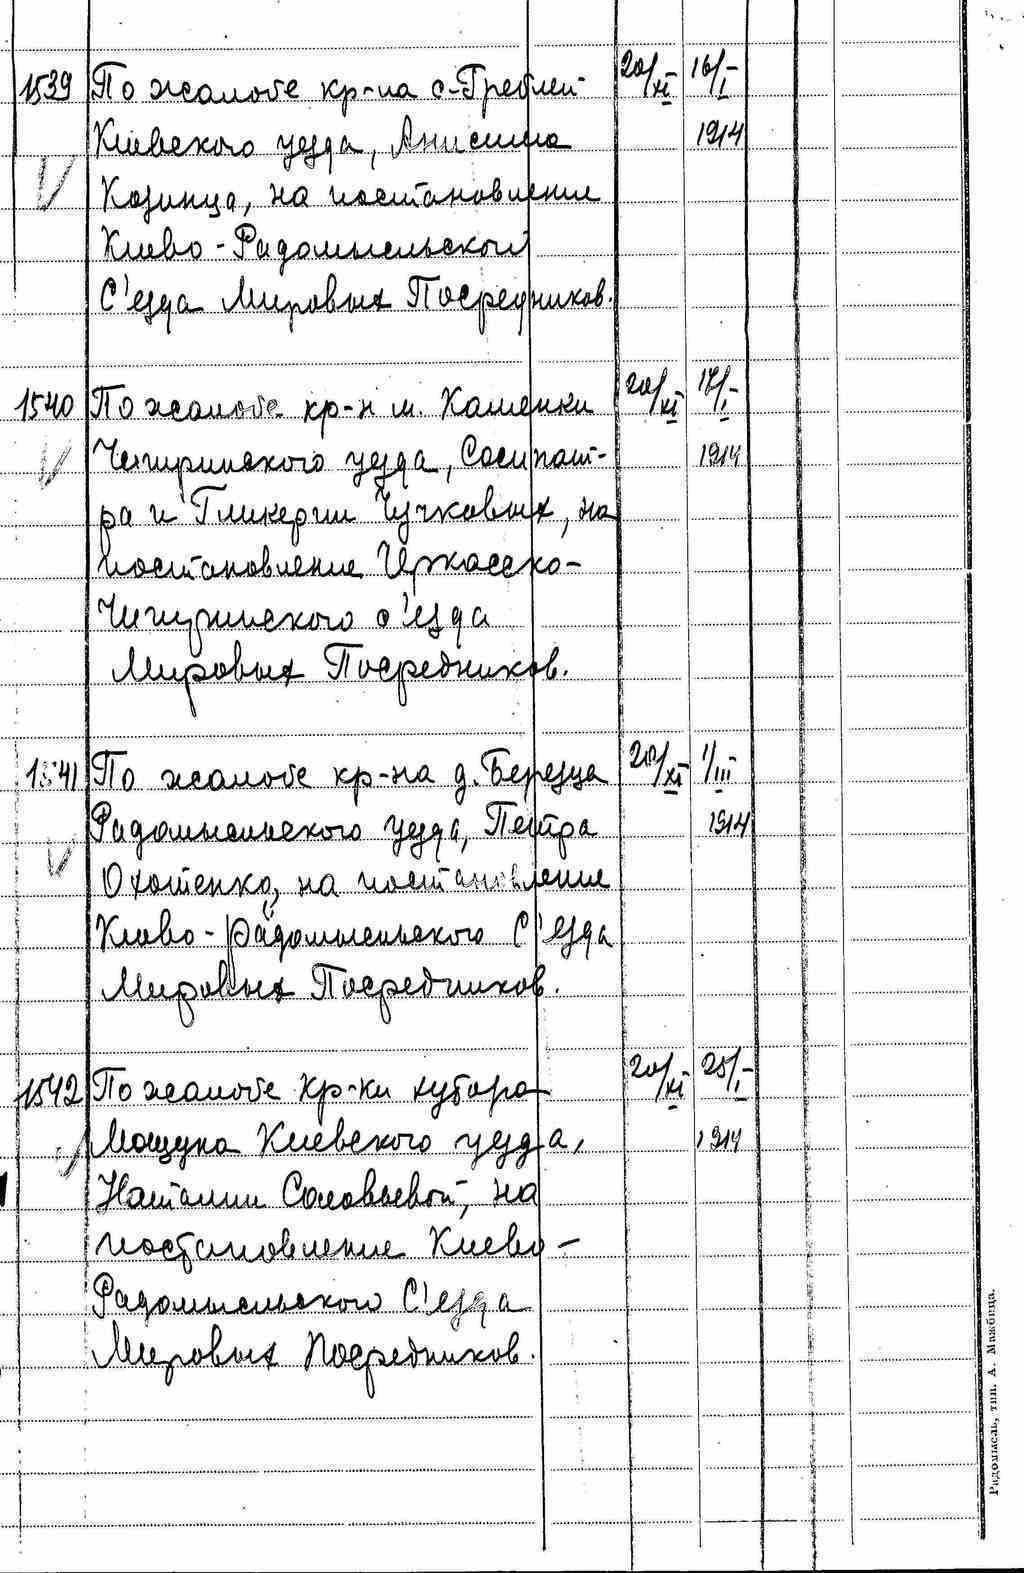 1539 По жалобе кр-на с. Греблей 20/XI 16/I
Киевского уезда, Анисима 1914
Козинца, на постановление
Киево-Радомысльского
С'езда Мировых Посредников.
1540 По жалобе кр-н м. Каменки 20/XI 17/I
Чигиринского уезда, Сосипат- 1914
ра и Гликерии Чучковых, на
постановление Черкасско-
Чигиринского с'езда
Мировых Посредников.
1541 По жалобе кр-на д. Березца 20/XI 1/III
Радомысльского уезда, Петра 1914
Охотенко, на постановление
Киево-Радомысльского С'езда
Мировых Посредников.
1542 По жалобе кр-ки хутора 20/XI 25/I
Мощуна Киевского уезда, 1914
Наталии Соловьевой, на
постановление Киево-
Радомысльского С'езда
Мировых Посредников.
Радомысль, тип. А. Мажбица.